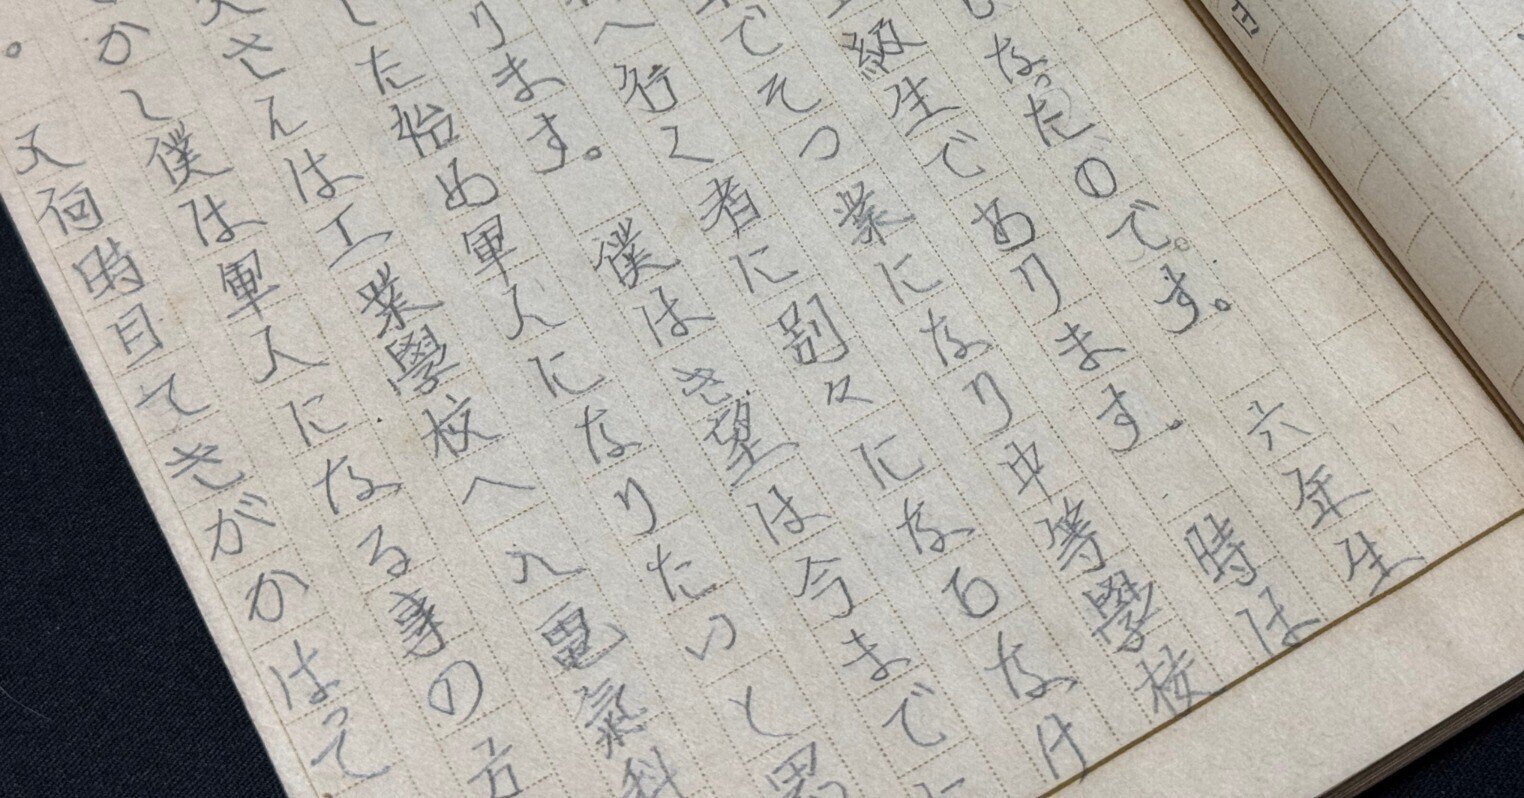 なったのです。　六年生
級生であります。　時は
でそつ業になり中等學校
へ行く者に別々になるなけ
ります。　僕はき望は今まで
した始め軍人になりたいと思
さんは工業學校へ入電氣科
かし僕は軍人になる事の方
。　又何時目てきがかはって